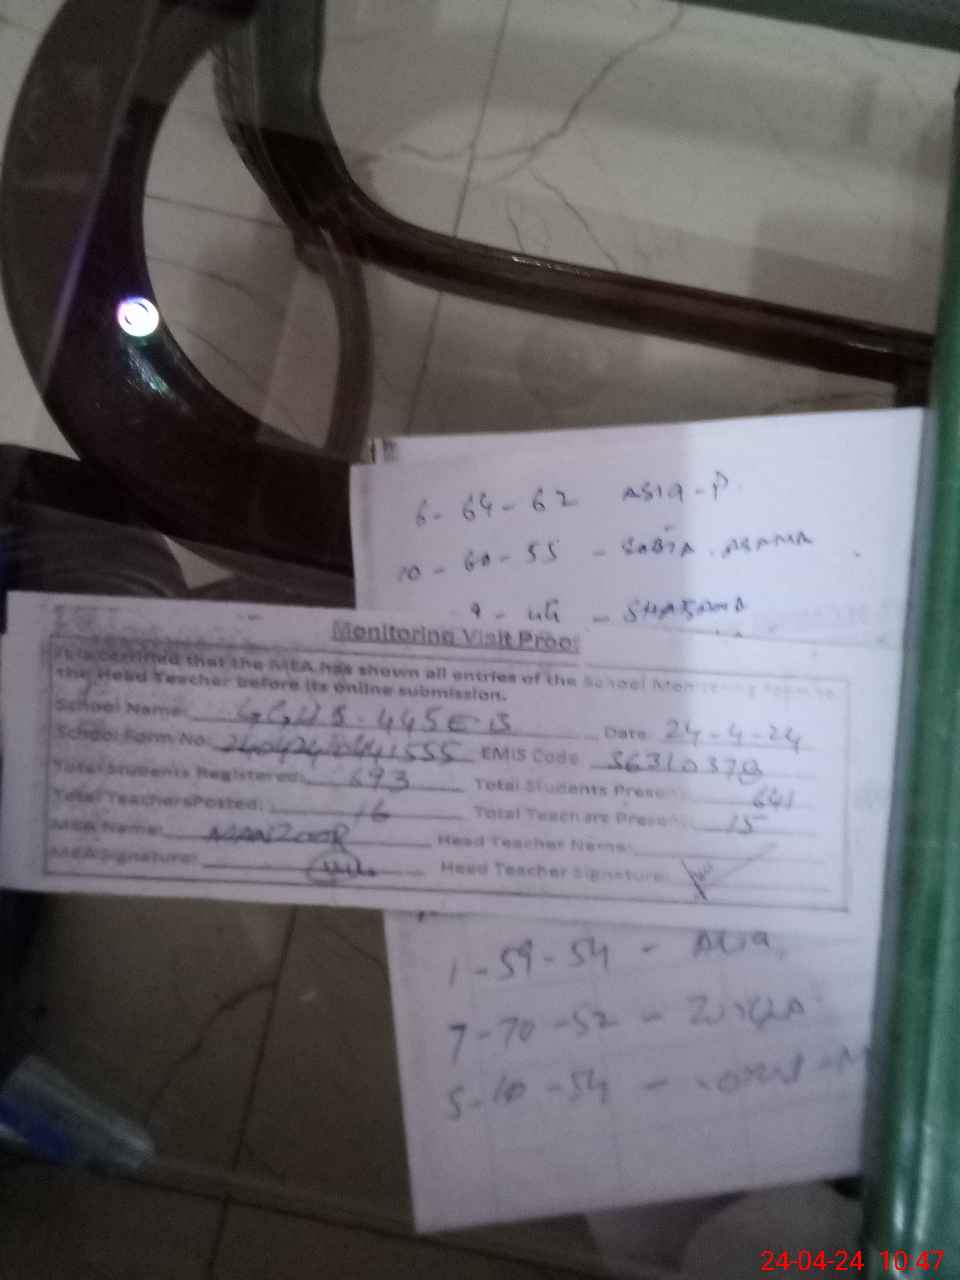 6 - 64 - 62 ASIA - P
10 - 60 - 55 - SOBIA . ASAMA
9 - 44 -
Monitoring Visit Proof
It is certified that the MEA has shown all entries of the School Monitoring form to
the Head Teacher before its online submission.
School Name: GGHS. 445 E-B Date 24-4-24
School Form No: EMIS Code 36310370
Total Students Registered: 693 Total Students Present: 641
Total Teachers Posted: 16 Total Teachers Present: 15
MEA Name: MANZOOR Head Teacher Name:
MEA Signature: Head Teacher Signature:
1 - 59 - 54 -
7 - 70 - 52 -
5 - 60 - 54 -
24-04-24 10:47